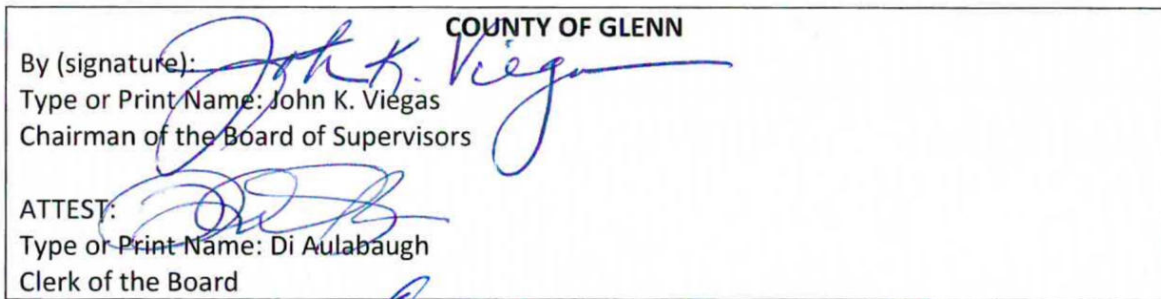 COUNTY OF GLENN
By (signature): John K. Viegas
Type or Print Name: John K. Viegas
Chairman of the Board of Supervisors
ATTEST:
Type or Print Name: Di Aulabaugh
Clerk of the Board